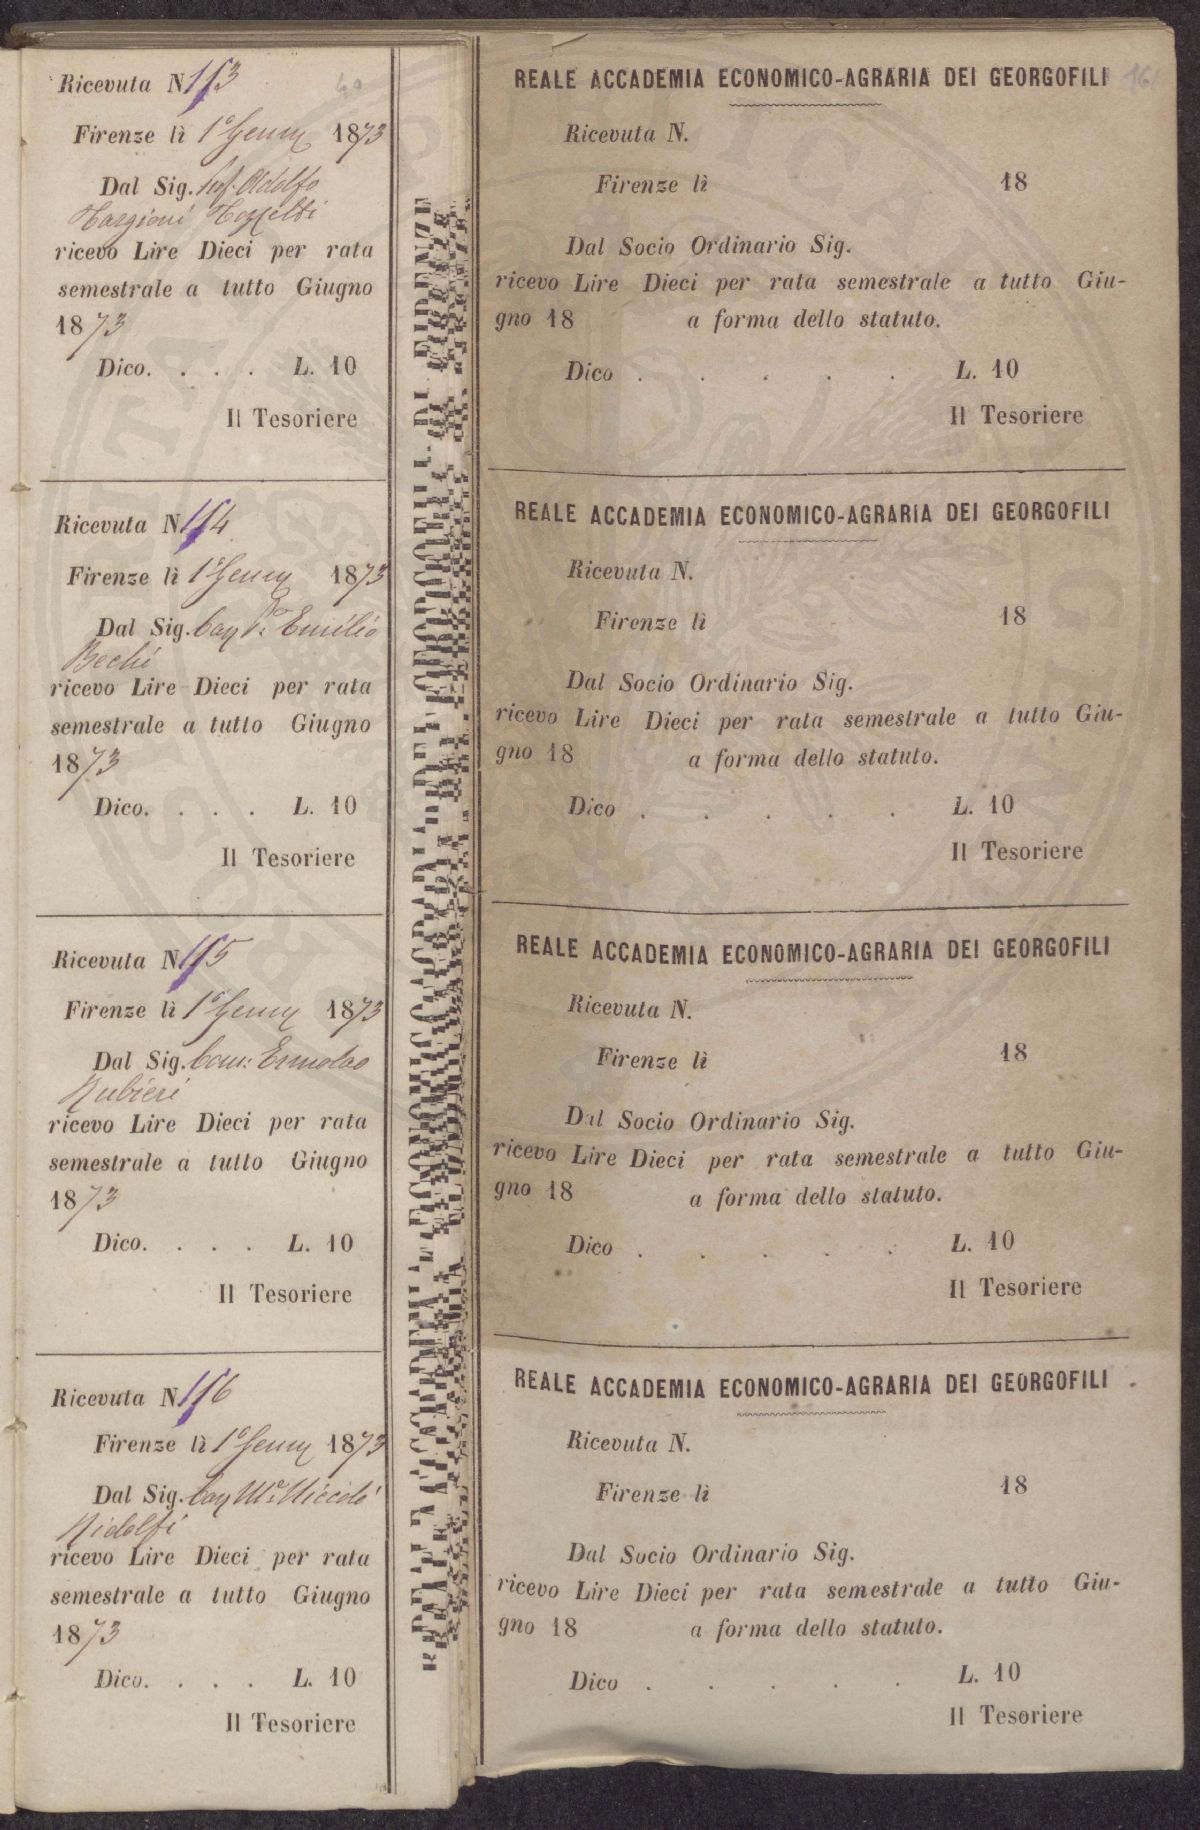 Ricevuta N. 153
40
Firenze lì 1° Genn 1873
Dal Sig. Prof. Adolfo
Targioni Tozzetti
ricevo Lire Dieci per rata
semestrale a tutto Giugno
1873
Dico. . . . L. 10
Il Tesoriere
Ricevuta N. 154
Firenze lì 1° Genn 1873
Dal Sig. Cav Emilio
Bechi
ricevo Lire Dieci per rata
semestrale a tutto Giugno
1873
Dico. . . . L. 10
Il Tesoriere
Ricevuta N. 155
Firenze lì 1° Genn 1873
Dal Sig. Cav: Ermolao
Rubieri
ricevo Lire Dieci per rata
semestrale a tutto Giugno
1873
Dico. . . . L. 10
Il Tesoriere
Ricevuta N. 156
Firenze lì 1° Genn 1873
Dal Sig. Cav Mse Niccolò
Ridolfi
ricevo Lire Dieci per rata
semestrale a tutto Giugno
1873
Dico. . . . L. 10
Il Tesoriere
REALE ACCADEMIA ECONOMICO-AGRARIA DEI GEORGOFILI DI FIRENZE
REALE ACCADEMIA ECONOMICO-AGRARIA DEI GEORGOFILI
Ricevuta N.
Firenze lì 18
Dal Socio Ordinario Sig.
ricevo Lire Dieci per rata semestrale a tutto Giu-
gno 18 a forma dello statuto.
Dico . . . . . L. 10
Il Tesoriere
REALE ACCADEMIA ECONOMICO-AGRARIA DEI GEORGOFILI
Ricevuta N.
Firenze lì 18
Dal Socio Ordinario Sig.
ricevo Lire Dieci per rata semestrale a tutto Giu-
gno 18 a forma dello statuto.
Dico . . . . . L. 10
Il Tesoriere
REALE ACCADEMIA ECONOMICO-AGRARIA DEI GEORGOFILI
Ricevuta N.
Firenze lì 18
Dal Socio Ordinario Sig.
ricevo Lire Dieci per rata semestrale a tutto Giu-
gno 18 a forma dello statuto.
Dico . . . . . L. 10
Il Tesoriere
REALE ACCADEMIA ECONOMICO-AGRARIA DEI GEORGOFILI
Ricevuta N.
Firenze lì 18
Dal Socio Ordinario Sig.
ricevo Lire Dieci per rata semestrale a tutto Giu-
gno 18 a forma dello statuto.
Dico . . . . . L. 10
Il Tesoriere